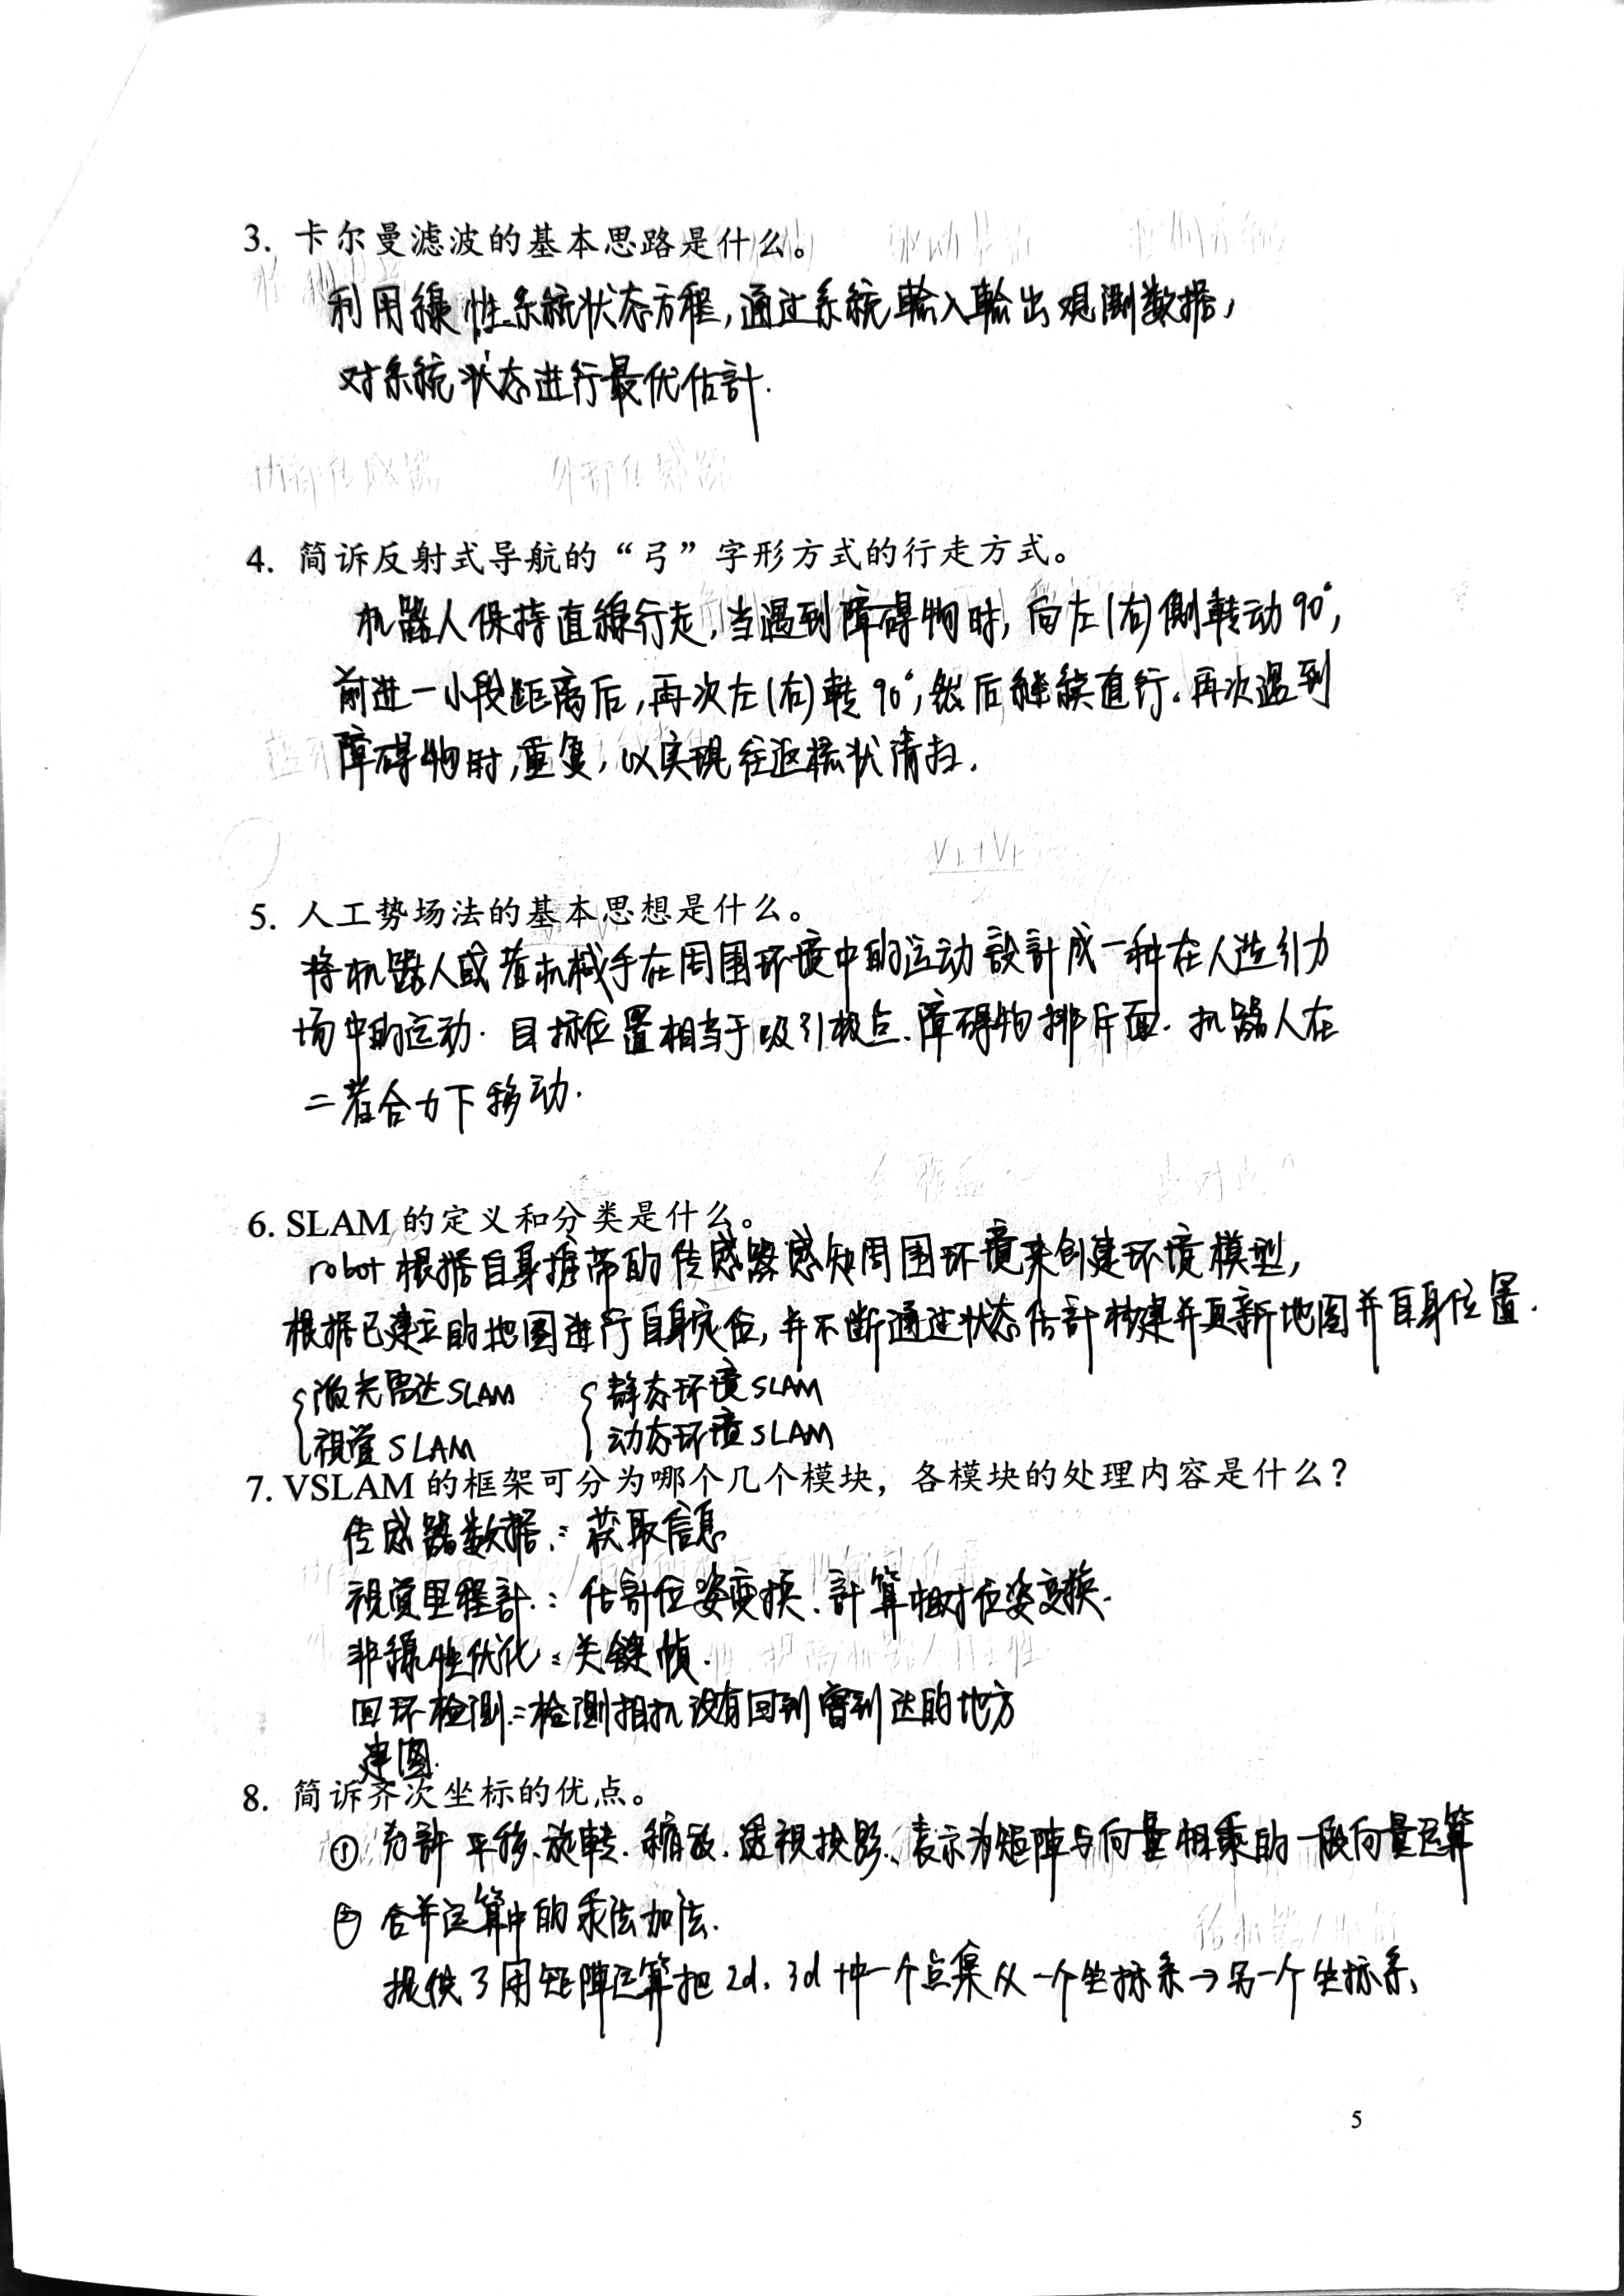 3. 卡尔曼滤波的基本思路是什么。
利用線性系統状态方程,通过系統輸入輸出观測数据,
对系統状态进行最优估計.
4. 简诉反射式导航的“弓”字形方式的行走方式。
机器人保持直線行走,当遇到障碍物时,向左(右)側転动90°,
前进一小段距离后,再次左(右)転90°,然后継続直行.再次遇到
障碍物时,重复,以实現往返梳状清扫.
5. 人工势场法的基本思想是什么。
将机器人或者机械手在周围环境中的运动設計成一种在人造引力
场中的运动.目标位置相当于吸引极点.障碍物排斥面.机器人在
二者合力下移动.
6. SLAM 的定义和分类是什么。
robot根据自身携带的传感器感知周围环境来创建环境模型,
根据已建立的地图进行自身定位,并不断通过状态估計构建并更新地图并自身位置.
激光雷达SLAM 静态环境SLAM
視覚SLAM 动态环境SLAM
7. VSLAM 的框架可分为哪个几个模块，各模块的处理内容是什么？
传感器数据:获取信息
視覚里程計:估計位姿変換.計算相对位姿変換.
非線性优化:关键帧.
回环检測:检測相机没有回到曾到达的地方
建图.
8. 简诉齐次坐标的优点。
① 允許平移.旋転.縮放.透視投影.表示为矩阵与向量相乘的一般向量运算
② 合并运算中的乘法加法.
提供了用矩阵运算把2d、3d中一个点集从一个坐标系→另一个坐标系、
5